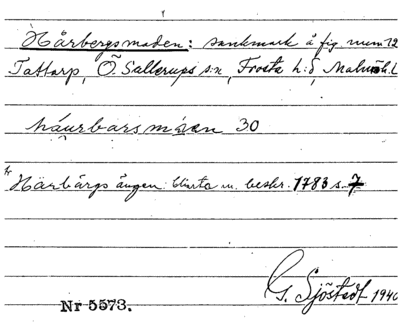 Hårbergsmaden: sankmark å fig. num 12
Tattarp, Ö. Sallerups sn, Frosta h:d, Malmöh. l.
30
Härbärgs ängen beskr. 1783 s. 7
G. Sjöstedt 1940
Nr 5573.